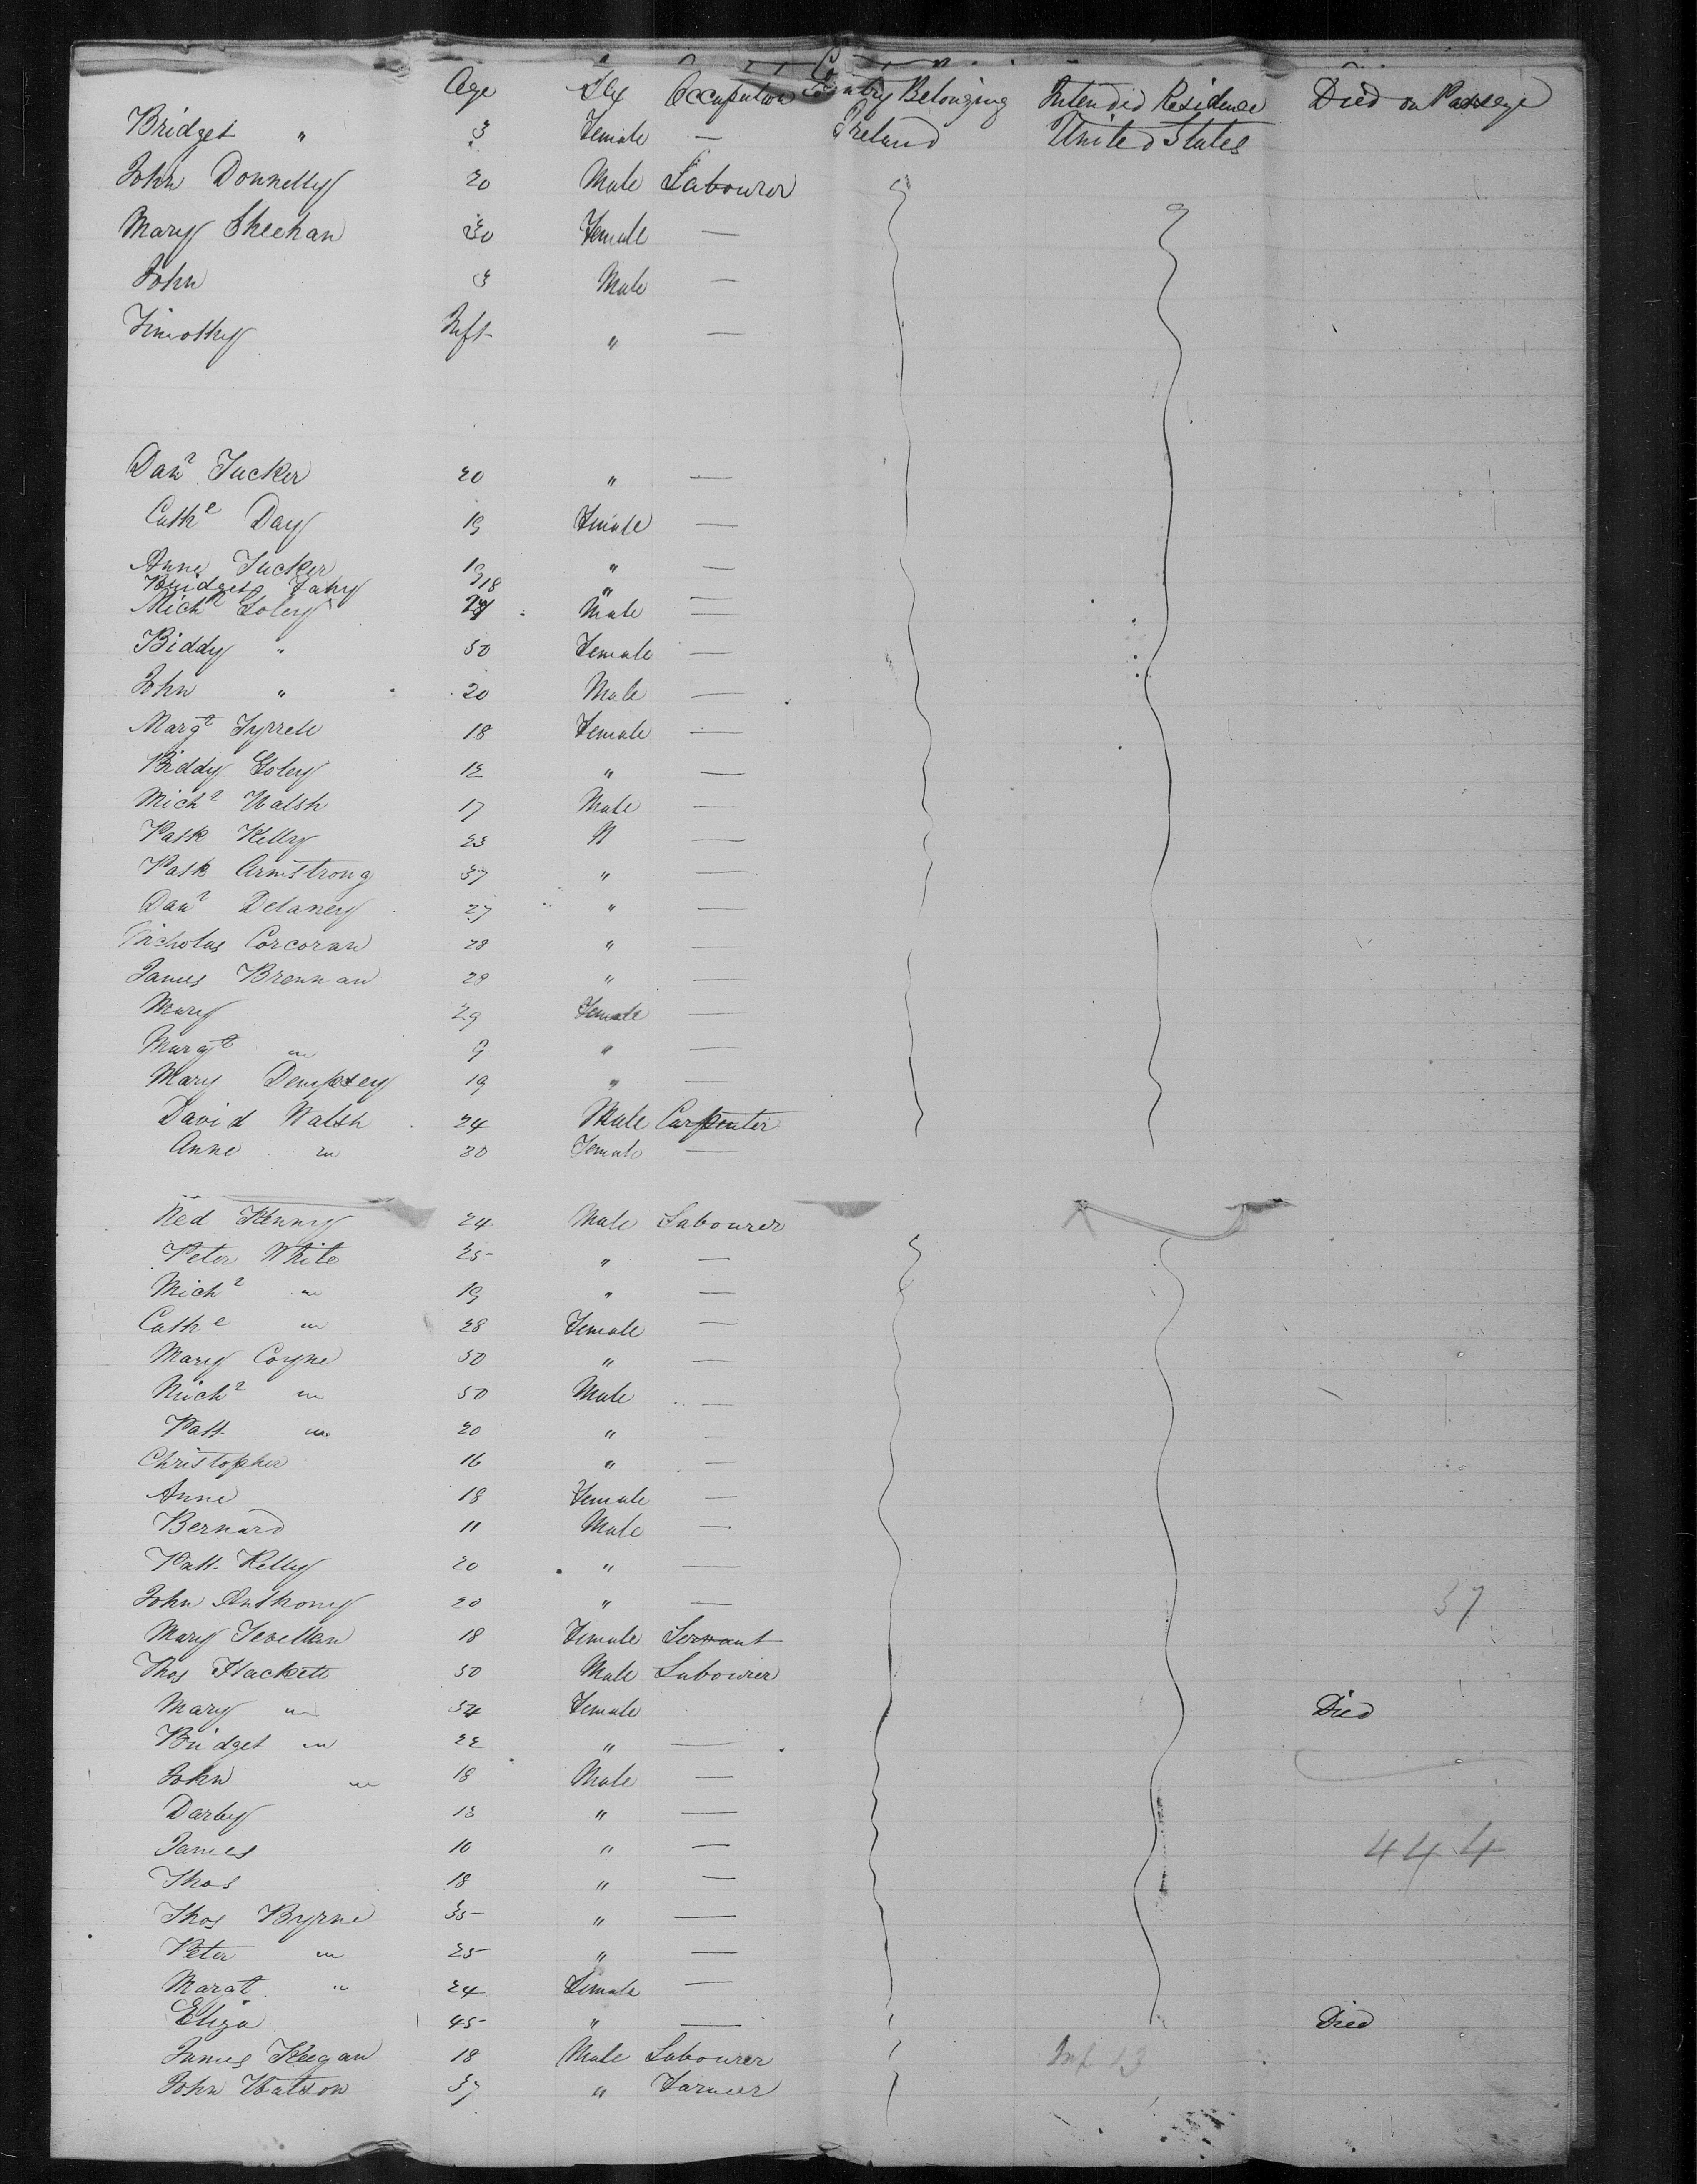 Age Sex Occupation Country Belonging Intended Residence Died on Passage
Bridget " 3 Female — Ireland United States
John Donnelly 20 Male Labourer
Mary Sheehan 30 Female —
John 3 Male —
Timothy Inft " —
Danl Tucker 20 " —
Cathe Day 19 Female —
Anne Tucker 19 " —
Bridget Fahy 18 " —
Michl Foley Male —
Biddy " 50 Female —
John " 20 Male —
Margt Tyrrell 18 Female —
Biddy Foley 12 " —
Michl Walsh 17 Male —
Patk Kelly 23 " —
Patk Armstrong 37 " —
Danl Delaney 27 " —
Nicholas Corcoran 28 " —
James Brennan 28 " —
Mary 29 Female —
Margt " 9 " —
Mary Dempsey 19 " —
David Walsh 24 Male Carpenter
Anne " 30 Female —
Ned Kenny 24 Male Labourer
Peter White 25 " —
Michl " 19 " —
Cathe " 28 Female —
Mary Coyne 50 " —
Michl " 50 Male —
Patt " 20 " —
Christopher 16 " —
Anne 18 Female —
Bernard 11 Male —
Patt Kelly 20 " —
John Anthony 20 " —
37
Mary 18 Female Servant
Thos Hackett 50 Male Labourer
Mary " 54 Female Died
Bridget " 22 " —
John " 18 Male —
Darby 13 " —
James 10 " —
444
Thos 18 " —
Thos Byrne 35 " —
Peter " 25 " —
Margt " 24 Female —
Eliza 45 " — Died
James Keegan 18 Male Labourer
Inf 13
John Watson 37 " Farmer